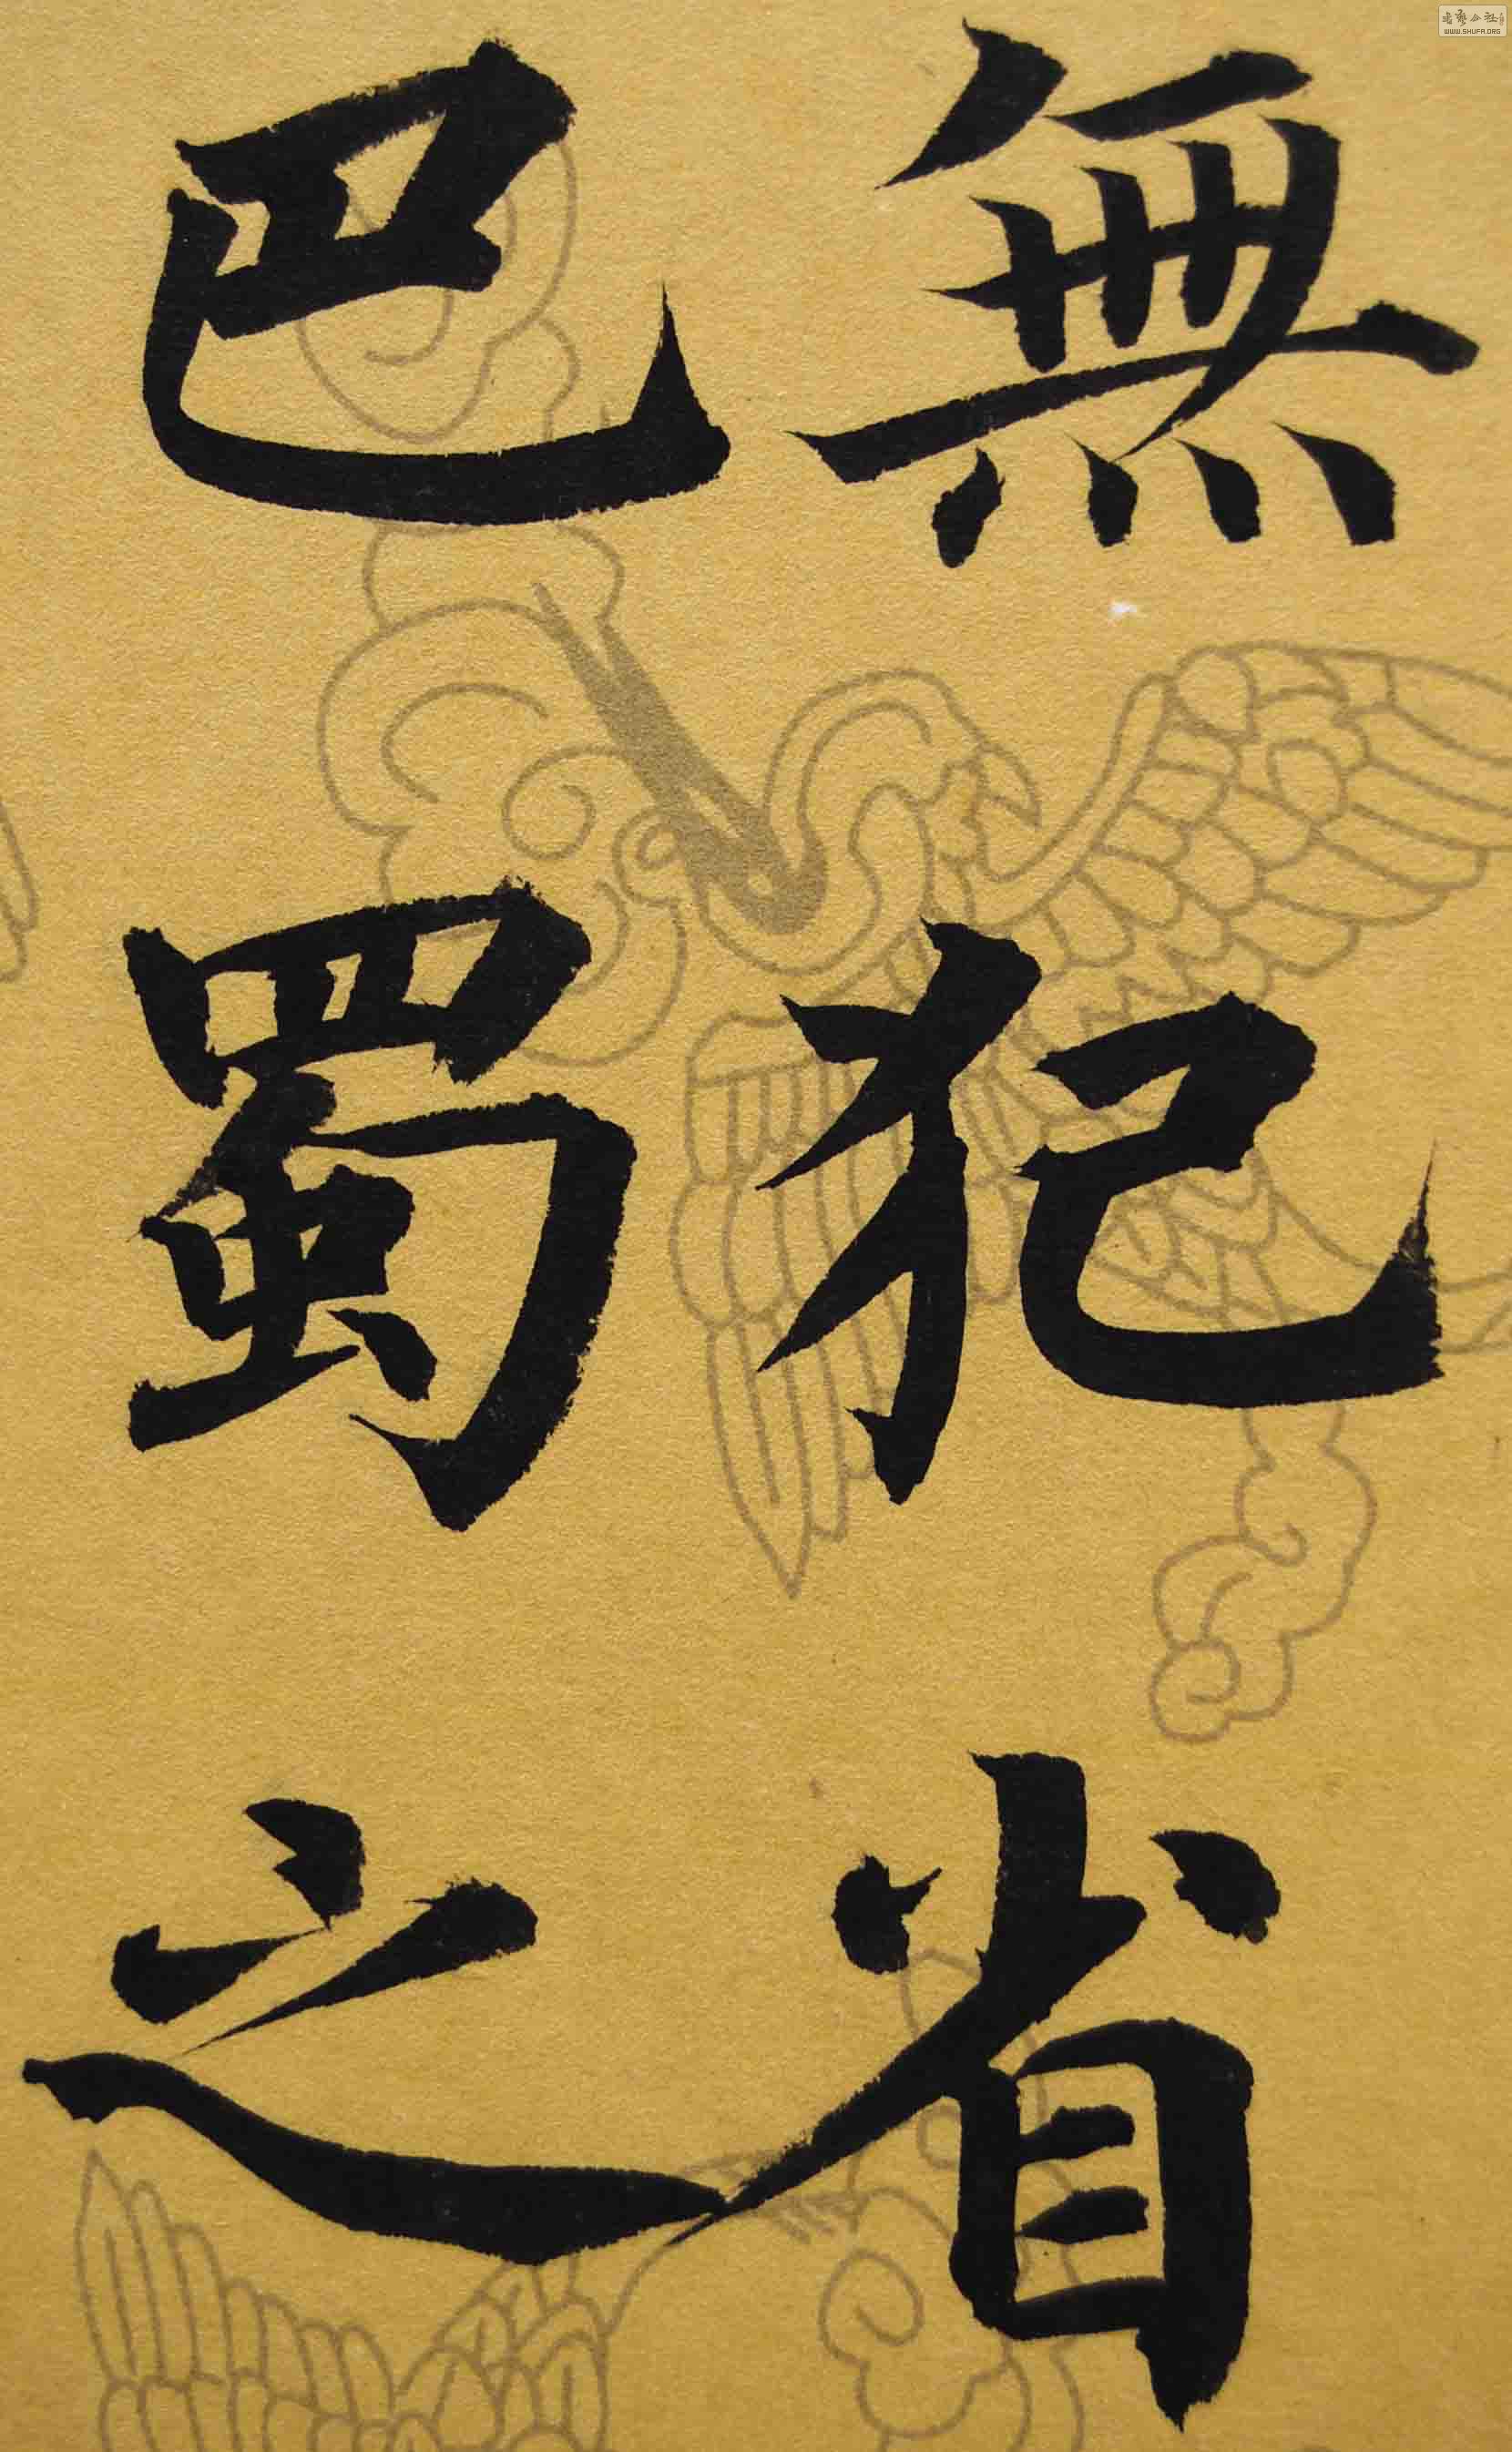 無犯省
巴蜀之
WWW.SHUFA.ORG